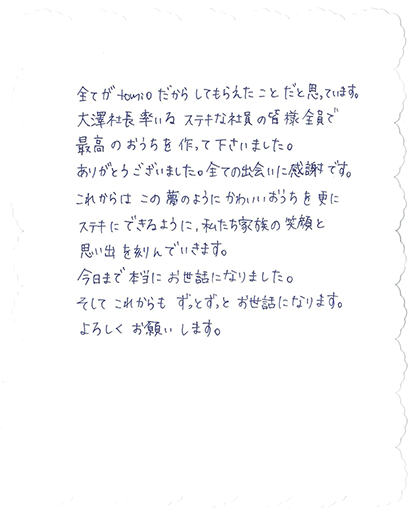 全てが tomio だから してもらえた ことだと思っています。
大澤社長 率いる ステキな社員の皆様全員で
最高の おうちを 作って下さいました。
ありがとうございました。全ての出会いに感謝です。
これからは この 夢のように かわいいおうちを 更に
ステキにできるように、私たち家族の笑顔と
思い出を刻んでいきます。
今日まで 本当に お世話になりました。
そして これからも ずっとずっと お世話になります。
よろしく お願い します。